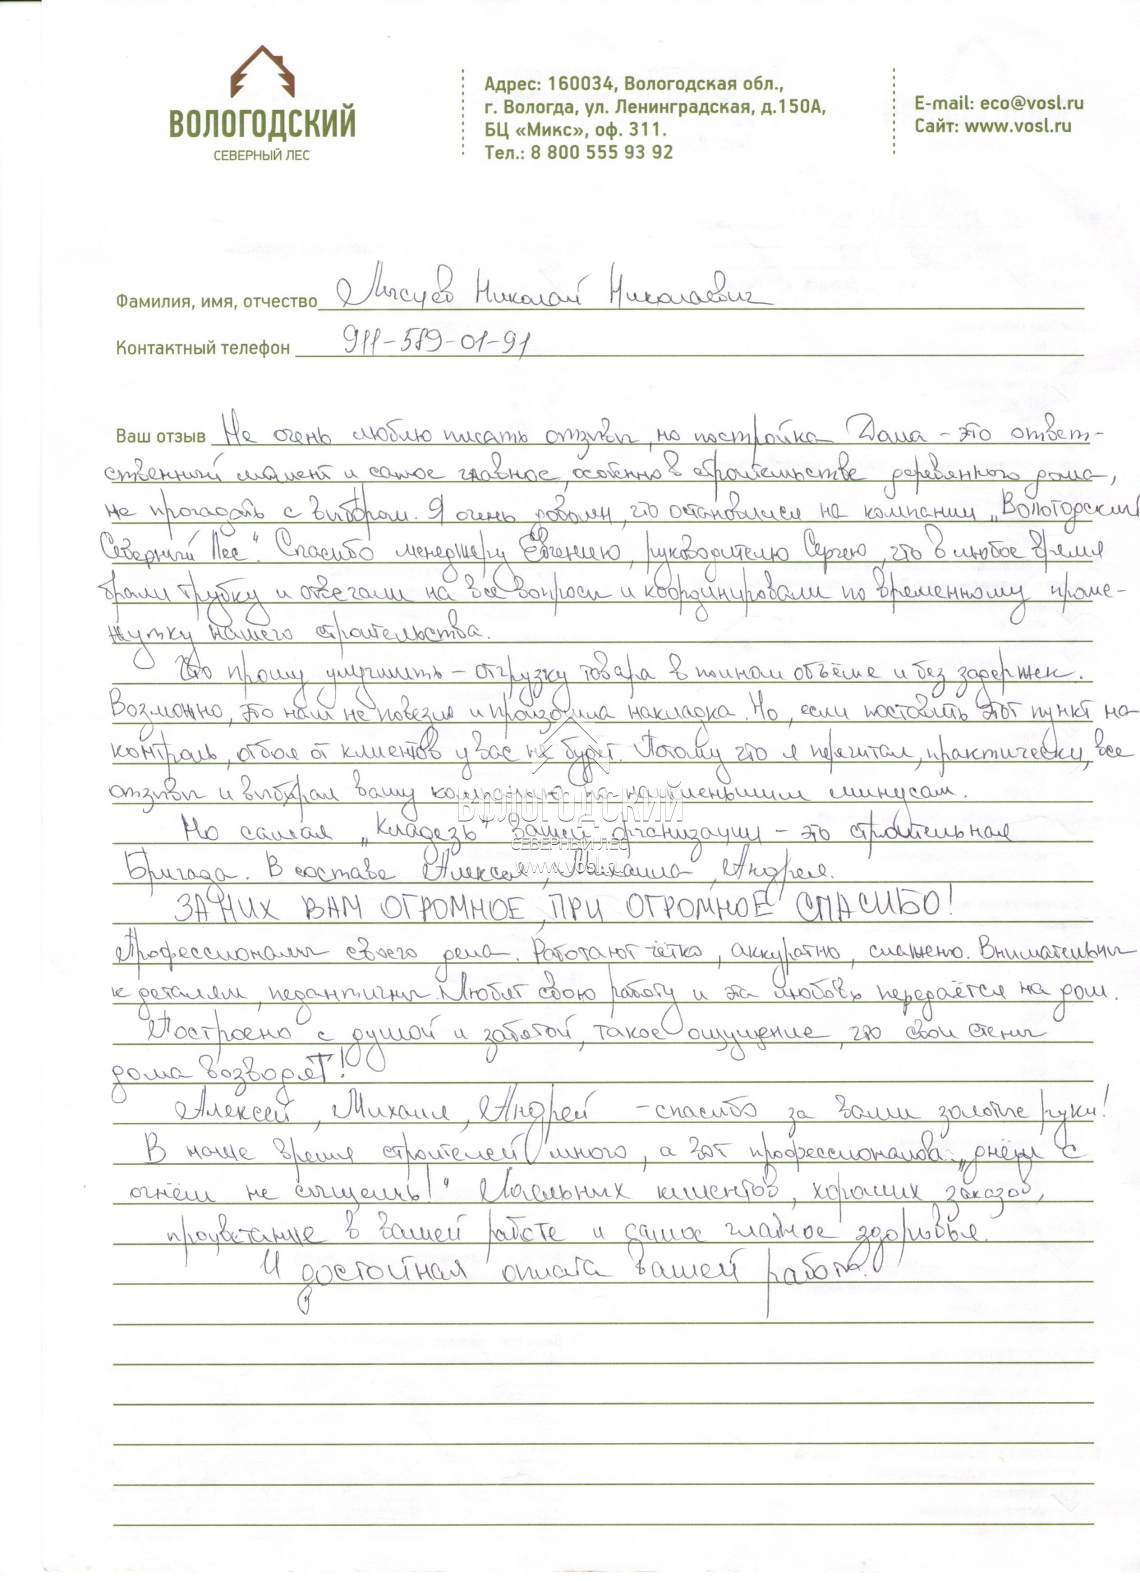 ВОЛОГОДСКИЙ
СЕВЕРНЫЙ ЛЕС
Адрес: 160034, Вологодская обл.,
г. Вологда, ул. Ленинградская, д.150А,
БЦ «Микс», оф. 311.
Тел.: 8 800 555 93 92
E-mail: eco@vosl.ru
Сайт: www.vosl.ru
Фамилия, имя, отчество Лысцев Николай Николаевич
Контактный телефон 911-519-01-91
Ваш отзыв Не очень люблю писать отзывы, но постройка Дома - это ответ-
ственный момент и самое главное, особенно в строительстве деревянного дома,
не прогадать с выбором. Я очень доволен, что остановился на компании „Вологодский
Северный Лес". Спасибо менеджеру Евгению, руководителю Сергею, что в любое время
брали трубку и отвечали на все вопросы и координировали по временному проме-
жутку нашего строительства.
Что прошу улучшить - отгрузку товара в полном объёме и без задержек.
Возможно, это нам не повезло и произошла накладка. Но, если поставить этот пункт на
контроль, отбоя от клиентов у вас не будет. Потому что я перечитал, практически, все
отзывы и выбирал вашу компанию по наименьшим минусам.
Но самая „Кладезь" вашей организации - это строительная
Бригада. В составе Алексея, Михаила, Андрея.
ЗА НИХ ВАМ ОГРОМНОЕ, ПРИ ОГРОМНОЕ СПАСИБО!
Профессионалы своего дела. Работают чётко, аккуратно, слажено. Внимательны
к деталям, педантичны. Любят свою работу и эта любовь передаётся на дом.
Построено с душой и заботой, такое ощущение, что свои стены
дома возводят!
Алексей, Михаил, Андрей - спасибо за ваши золотые руки!
В наше время строителей много, а вот профессионалов „днём с
огнём не сыщешь!" Лояльных клиентов, хороших заказов,
процветание в вашей работе и самое главное здоровья.
И достойная оплата вашей работы.
ВОЛОГОДСКИЙ
СЕВЕРНЫЙ ЛЕС
www.vosl.ru